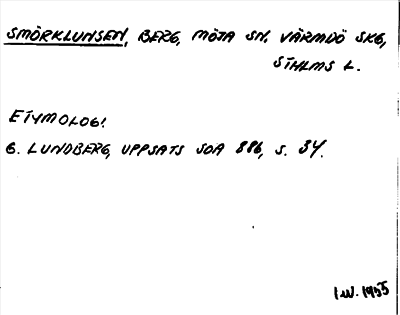 SMÖRKLUNSEN, BERG, MÖJA SN, VÄRMDÖ SKG,
STHLMS L.
ETYMOLOGI.
B. LUNDBERG, UPPSATS SOA 886, S. 34.
I.W. 1955